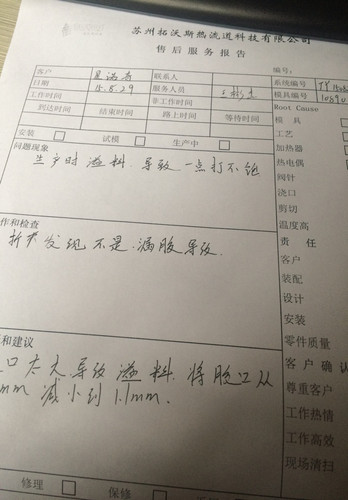 苏州拓沃斯热流道科技有限公司
售后服务报告
编号:
客户 联系人 系统编号
日期 15.8.29 服务人员 模具编号
工作时间 非工作时间 Root Cause
到达时间 结束时间 路上时间 等待时间 模 具
安装 试模 生产中 工艺
问题现象 加热器
生产时溢料.导致一点打不饱 热电偶
阀针
浇口
剪切
温度高
作和检查 责 任
拆开发现不是.漏胶导致. 客户
装配
设计
安装
零件质量
和建议 客户确认
口太大导致溢料.将胶口从 尊重客户
mm 减小到1.1mm. 工作热情
工作高效
现场清扫
修理 保修